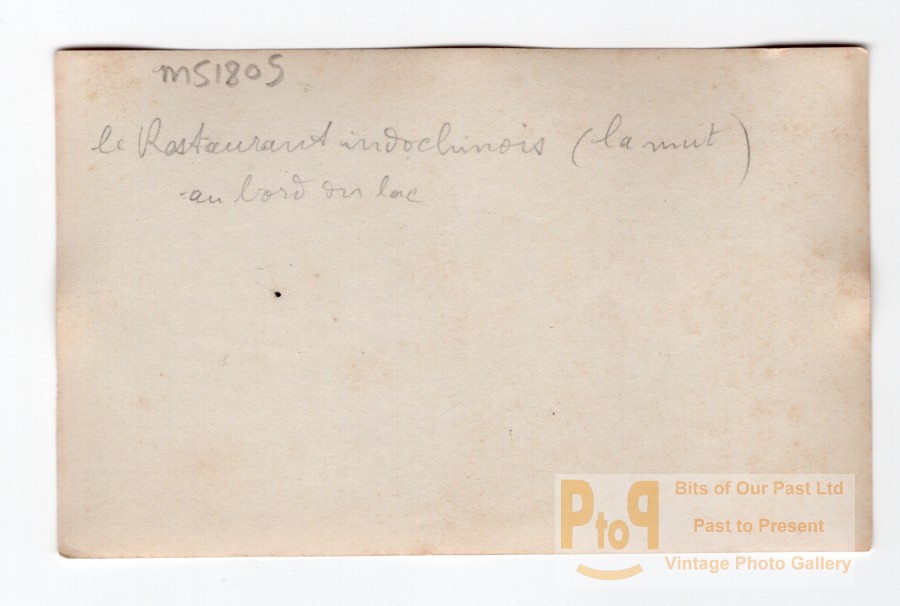 MS1805
le Restaurant indochinois (la nuit)
au bord du lac
PtoP
Bits of Our Past Ltd
Past to Present
Vintage Photo Gallery